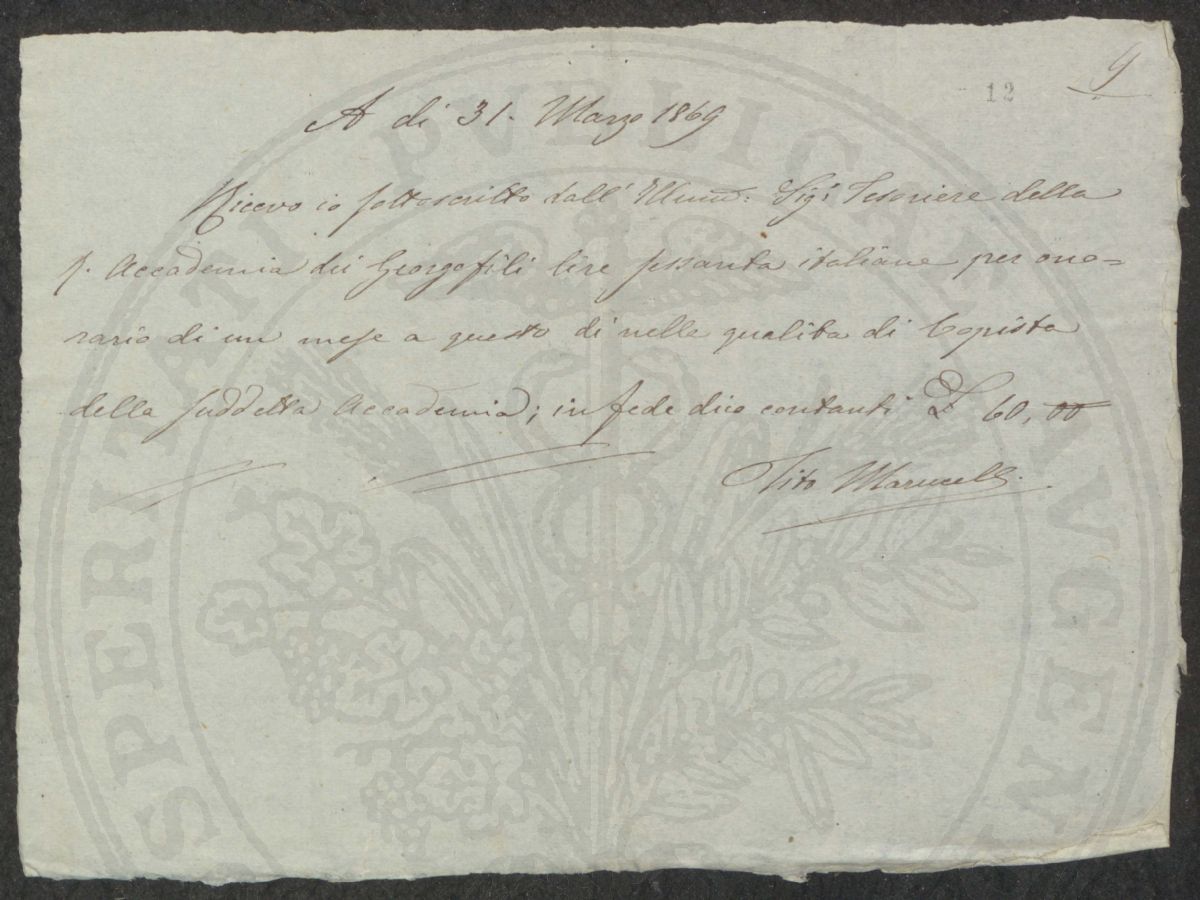 9
12
A di 31. Marzo 1869
Ricevo io sottoscritto dall' Illmo: Sigr Tesoriere della
Accademia dei Georgofili lire sessanta italiane per ono=
rario di un mese a questo dì nella qualità di Copista
della suddetta Accademia; in fede dico contanti £ 60,00
Tito Marucelli.
PROSPERITATI PVBLICAE AVGEN